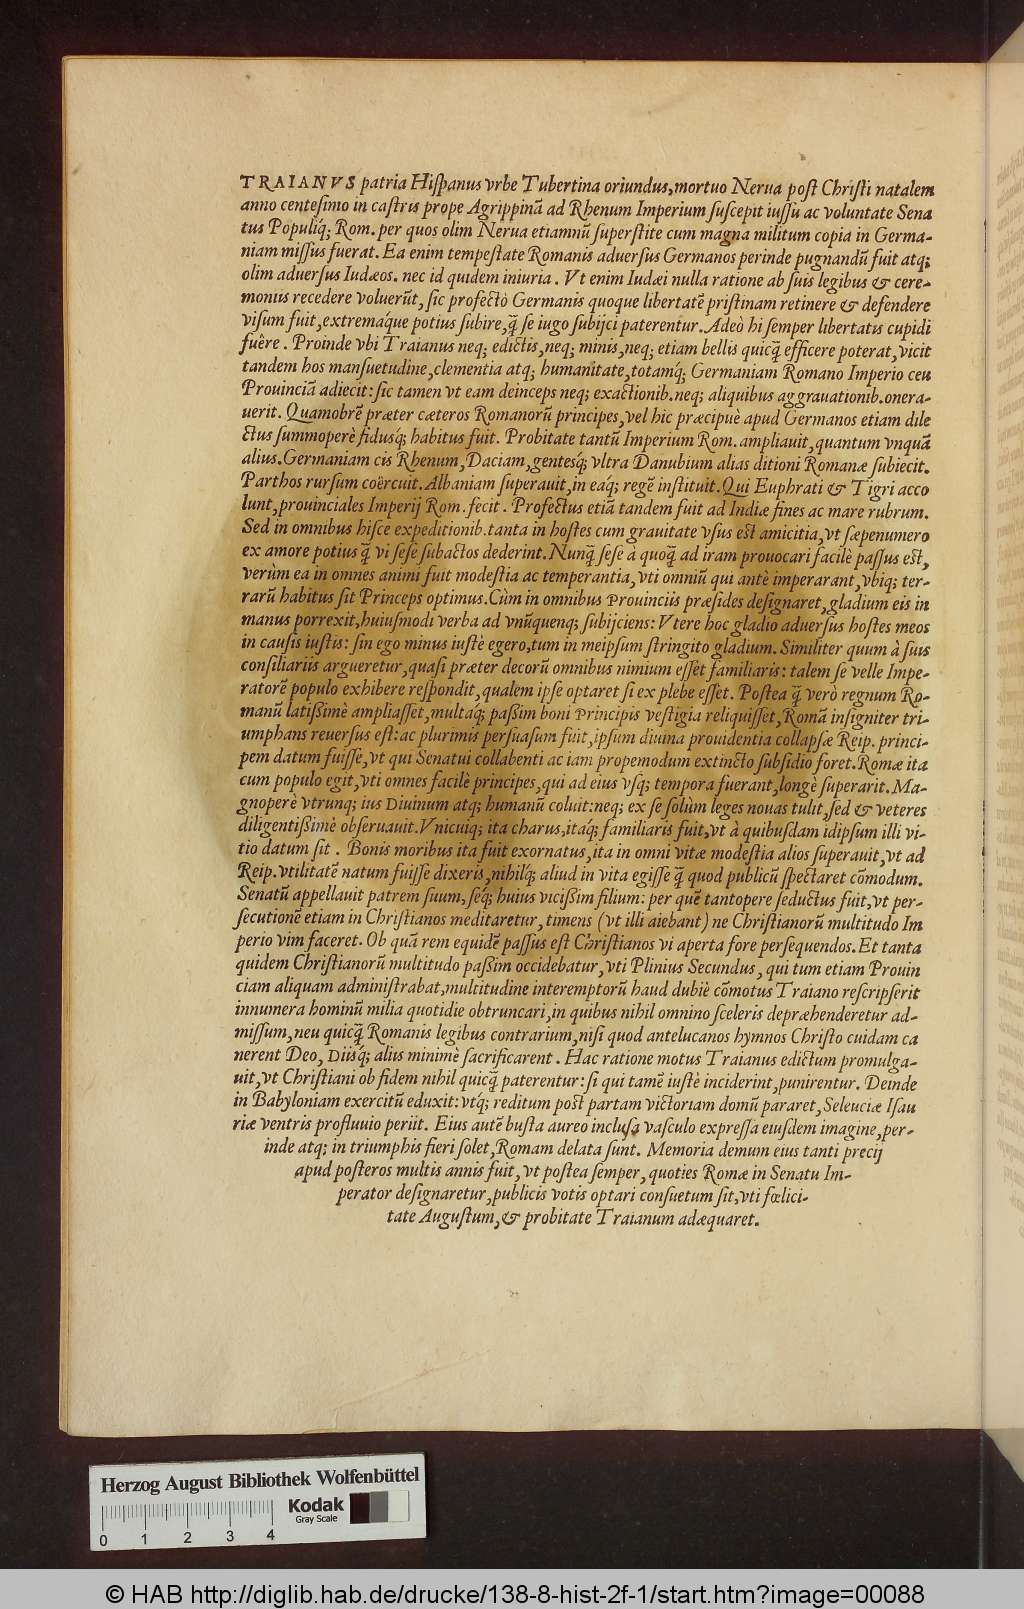 TRAIANVS patria Hiſpanus vrbe Tubertina oriundus, mortuo Nerua poſt Chriſti natalem
anno centeſimo in caſtris prope Agrippinã ad Rhenum Imperium ſuſcepit iuſſu ac voluntate Sena
tus Populiq́; Rom. per quos olim Nerua etiamnũ ſuperſtite cum magna militum copia in Germa-
niam miſſus fuerat. Ea enim tempeſtate Romanis aduerſus Germanos perinde pugnandũ fuit atq;
olim aduerſus Iudæos. nec id quidem iniuria. Vt enim Iudæi nulla ratione ab ſuis legibus & cere-
moniis recedere voluerũt, ſic profectò Germanis quoque libertatẽ priſtinam retinere & defendere
viſum fuit, extremáque potius ſubire, q̃ ſe iugo ſubijci paterentur. Adeò hi ſemper libertatis cupidi
fuêre. Proinde vbi Traianus neq; edictis, neq; minis, neq; etiam bellis quicq̃ efficere poterat, vicit
tandem hos manſuetudine, clementia atq; humanitate, totamq́; Germaniam Romano Imperio ceu
Prouinciã adiecit: ſic tamen vt eam deinceps neq; exactionib. neq; aliquibus aggrauationib. onera-
uerit. Quamobrẽ præter cæteros Romanorũ principes, vel hic præcipuè apud Germanos etiam dile
ctus ſummoperè fidusq́; habitus fuit. Probitate tantũ Imperium Rom. ampliauit, quantum vnquã
alius. Germaniam cis Rhenum, Daciam, gentesq́; vltra Danubium alias ditioni Romanæ ſubiecit.
Parthos rurſum coërcuit. Albaniam ſuperauit, in eaq́; regẽ inſtituit. Qui Euphrati & Tigri acco
lunt, prouinciales Imperij Rom. fecit. Profectus etiã tandem fuit ad Indiæ fines ac mare rubrum.
Sed in omnibus hiſce expeditionib. tanta in hoſtes cum grauitate vſus eſt amicitia, vt ſæpenumero
ex amore potius q̃ vi ſeſe ſubactos dederint. Nunq̃ ſeſe à quoq̃ ad iram prouocari facilè paſſus eſt,
verùm ea in omnes animi fuit modeſtia ac temperantia, vti omniũ qui antè imperarant, vbiq; ter-
rarũ habitus ſit Princeps optimus. Cùm in omnibus Prouinciis præſides deſignaret, gladium eis in
manus porrexit, huiuſmodi verba ad vnũquenq; ſubijciens: Vtere hoc gladio aduerſus hoſtes meos
in cauſis iuſtis: ſin ego minus iuſtè egero, tum in meipſum ſtringito gladium. Similiter quum à ſuis
conſiliariis argueretur, quaſi præter decorũ omnibus nimium eſſet familiaris: talem ſe velle Impe-
ratorẽ populo exhibere reſpondit, qualem ipſe optaret ſi ex plebe eſſet. Poſtea q̃ verò regnum Ro-
manũ latißimè ampliaſſet, multaq́; paßim boni Principis veſtigia reliquiſſet, Romã inſigniter tri-
umphans reuerſus eſt: ac plurimis perſuaſum fuit, ipſum diuina prouidentia collapſæ Reip. princi-
pem datum fuiſſe, vt qui Senatui collabenti ac iam propemodum extincto ſubſidio foret. Romæ ita
cum populo egit, vti omnes facilè principes, qui ad eius vſq; tempora fuerant, longè ſuperarit. Ma-
gnoperè vtrunq; ius Diuinum atq; humanũ coluit: neq; ex ſe ſolùm leges nouas tulit, ſed & veteres
diligentißimè obſeruauit. Vnicuiq; ita charus, itaq́; familiaris fuit, vt à quibuſdam idipſum illi vi-
tio datum ſit. Bonis moribus ita fuit exornatus, ita in omni vitæ modeſtia alios ſuperauit, vt ad
Reip. vtilitatẽ natum fuiſſe dixeris, nihilq́; aliud in vita egiſſe q̃ quod publicũ ſpectaret cõmodum.
Senatũ appellauit patrem ſuum, ſeq́; huius vicißim filium: per quẽ tantopere ſeductus fuit, vt per-
ſecutionẽ etiam in Chriſtianos meditaretur, timens (vt illi aiebant) ne Chriſtianorũ multitudo Im
perio vim faceret. Ob quã rem equidẽ paſſus eſt Chriſtianos vi aperta fore perſequendos. Et tanta
quidem Chriſtianorũ multitudo paßim occidebatur, vti Plinius Secundus, qui tum etiam Prouin
ciam aliquam adminiſtrabat, multitudine interemptorũ haud dubiè cõmotus Traiano reſcripſerit
innumera hominũ milia quotidie obtruncari, in quibus nihil omnino ſceleris depræhenderetur ad-
miſſum, neu quicq̃ Romanis legibus contrarium, niſi quod antelucanos hymnos Chriſto cuidam ca
nerent Deo, Diisq́; alius minimè ſacrificarent. Hac ratione motus Traianus edictum promulga-
uit, vt Chriſtiani ob fidem nihil quicq̃ paterentur: ſi qui tamẽ iuſtè inciderint, punirentur. Deinde
in Babyloniam exercitũ eduxit: vtq́; reditum poſt partam victoriam domũ pararet, Seleuciæ Iſau
riæ ventris profluuio periit. Eius autẽ buſta aureo incluſa vaſculo expreſſa eiuſdem imagine, per-
inde atq; in triumphis fieri ſolet, Romam delata ſunt. Memoria demum eius tanti precij
apud poſteros multis annis fuit, vt poſtea ſemper, quoties Romæ in Senatu Im-
perator deſignaretur, publicis votis optari conſuetum ſit, vti fœlici-
tate Auguſtum, & probitate Traianum adæquaret.
Herzog August Bibliothek Wolfenbüttel
Kodak
Gray Scale
0 1 2 3 4
© HAB http://diglib.hab.de/drucke/138-8-hist-2f-1/start.htm?image=00088